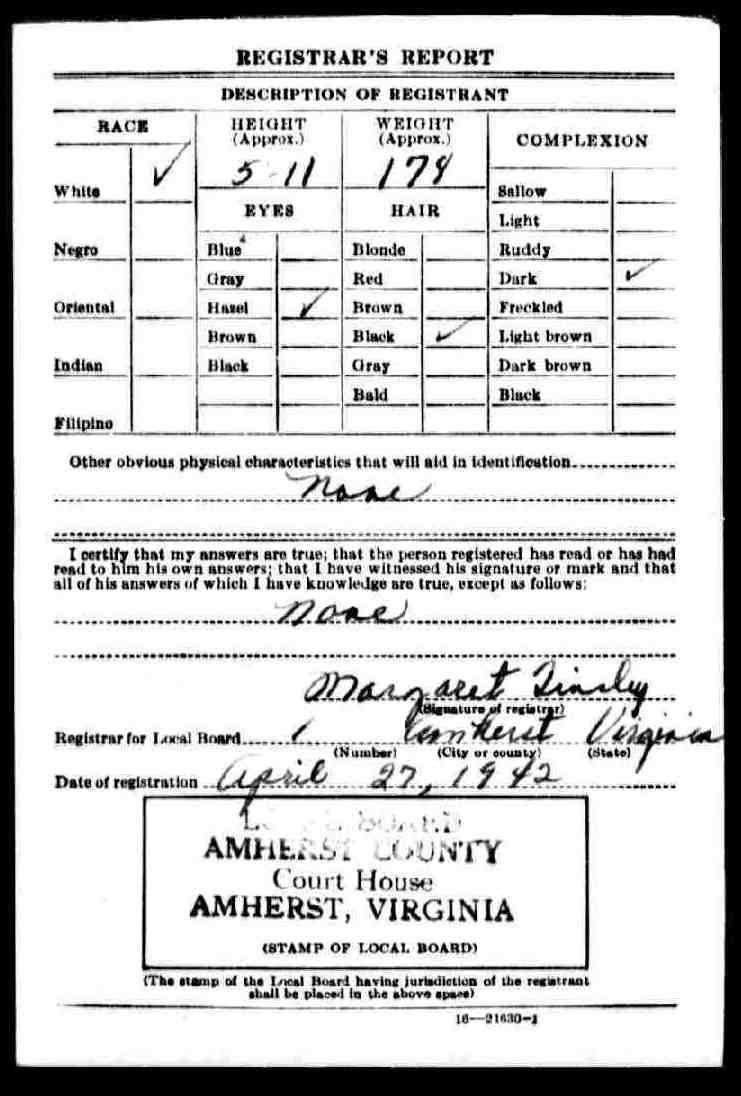 REGISTRAR'S REPORT
DESCRIPTION OF REGISTRANT
RACE
HEIGHT (Approx.)
WEIGHT (Approx.)
COMPLEXION
5 11
White ✓
Sallow
EYES
HAIR
Light
Negro
Blue
Blonde
Ruddy
Gray
Red
Dark ✓
Oriental
Hazel ✓
Brown
Freckled
Brown
Black ✓
Light brown
Indian
Black
Gray
Dark brown
Bald
Black
Filipino
Other obvious physical characteristics that will aid in identification
None
I certify that my answers are true; that the person registered has read or has had
read to him his own answers; that I have witnessed his signature or mark and that
all of his answers of which I have knowledge are true, except as follows:
None
Margaret Tinsley
(Signature of registrar)
Registrar for Local Board 1 Amherst Virginia
(Number) (City or county) (State)
Date of registration April 27, 1942
LOCAL BOARD
AMHERST COUNTY
Court House
AMHERST, VIRGINIA
(STAMP OF LOCAL BOARD)
(The stamp of the Local Board having jurisdiction of the registrant
shall be placed in the above space)
16—21630-1